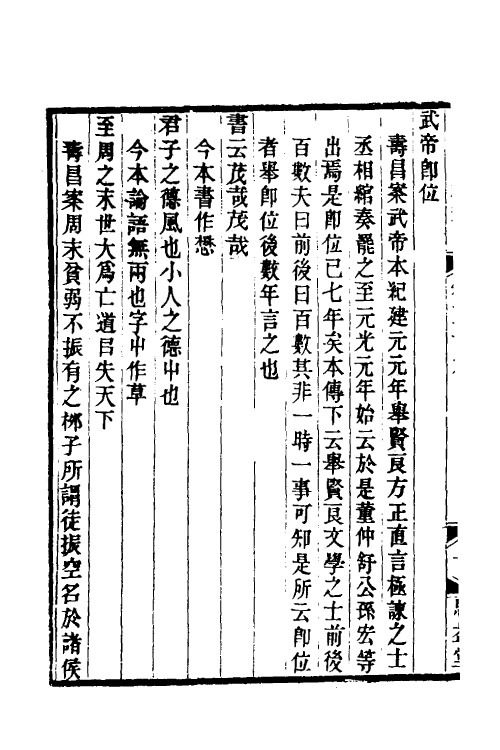 武帝卽位
壽昌案武帝本紀建元元年舉賢良方正直言極諫之士
丞相綰奏罷之至元光元年始云於是董仲舒公孫宏等
出焉是卽位已七年矣本傳下云舉賢良文學之士前後
百數夫曰前後曰百數其非一時一事可知是所云卽位
者舉卽位後數年言之也
書云茂哉茂哉
今本書作懋
君子之德風也小人之德屮也
今本論語無兩也字屮作草
至周之末世大爲亡道㠯失天下
壽昌案周末貧弱不振有之桺子所謂徒振空名於諸侯